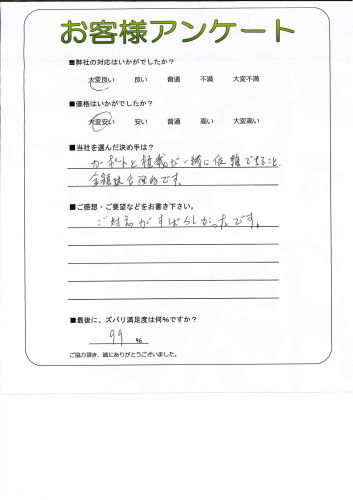 お客様アンケート
■弊社の対応はいかがでしたか？
大変良い 良い 普通 不満 大変不満
■価格はいかがでしたか？
大変安い 安い 普通 高い 大変高い
■当社を選んだ決め手は？
カーポートと が一緒に依頼できること、
金額 です。
■ご感想・ご要望などをお書き下さい。
ご対応がすばらしかったです。
■最後に、ズバリ満足度は何%ですか？
99 %
ご協力頂き、誠にありがとうございました。